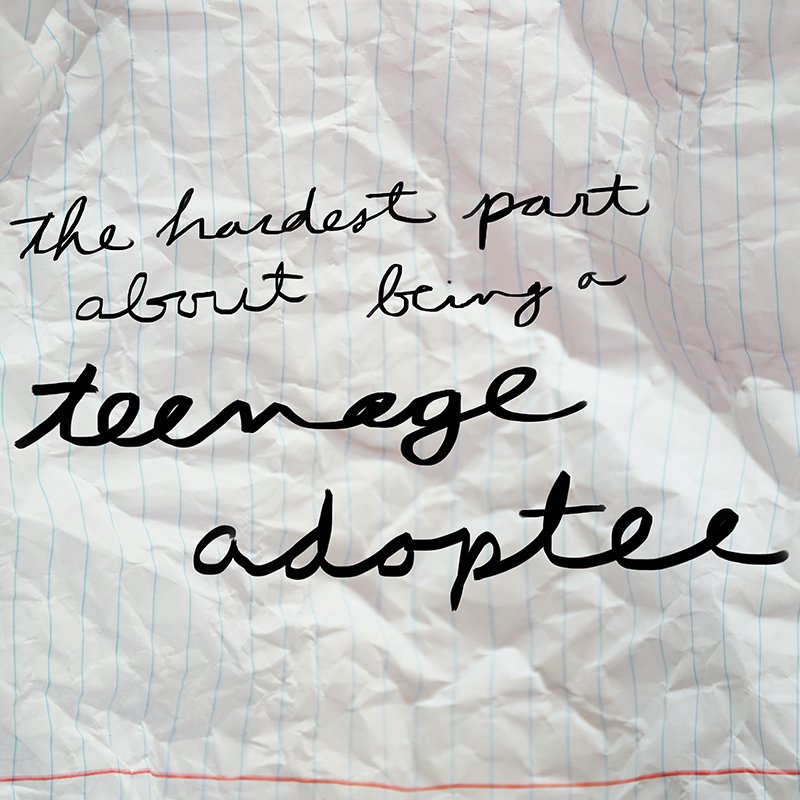 the hardest part
about being a
teenage
adoptee